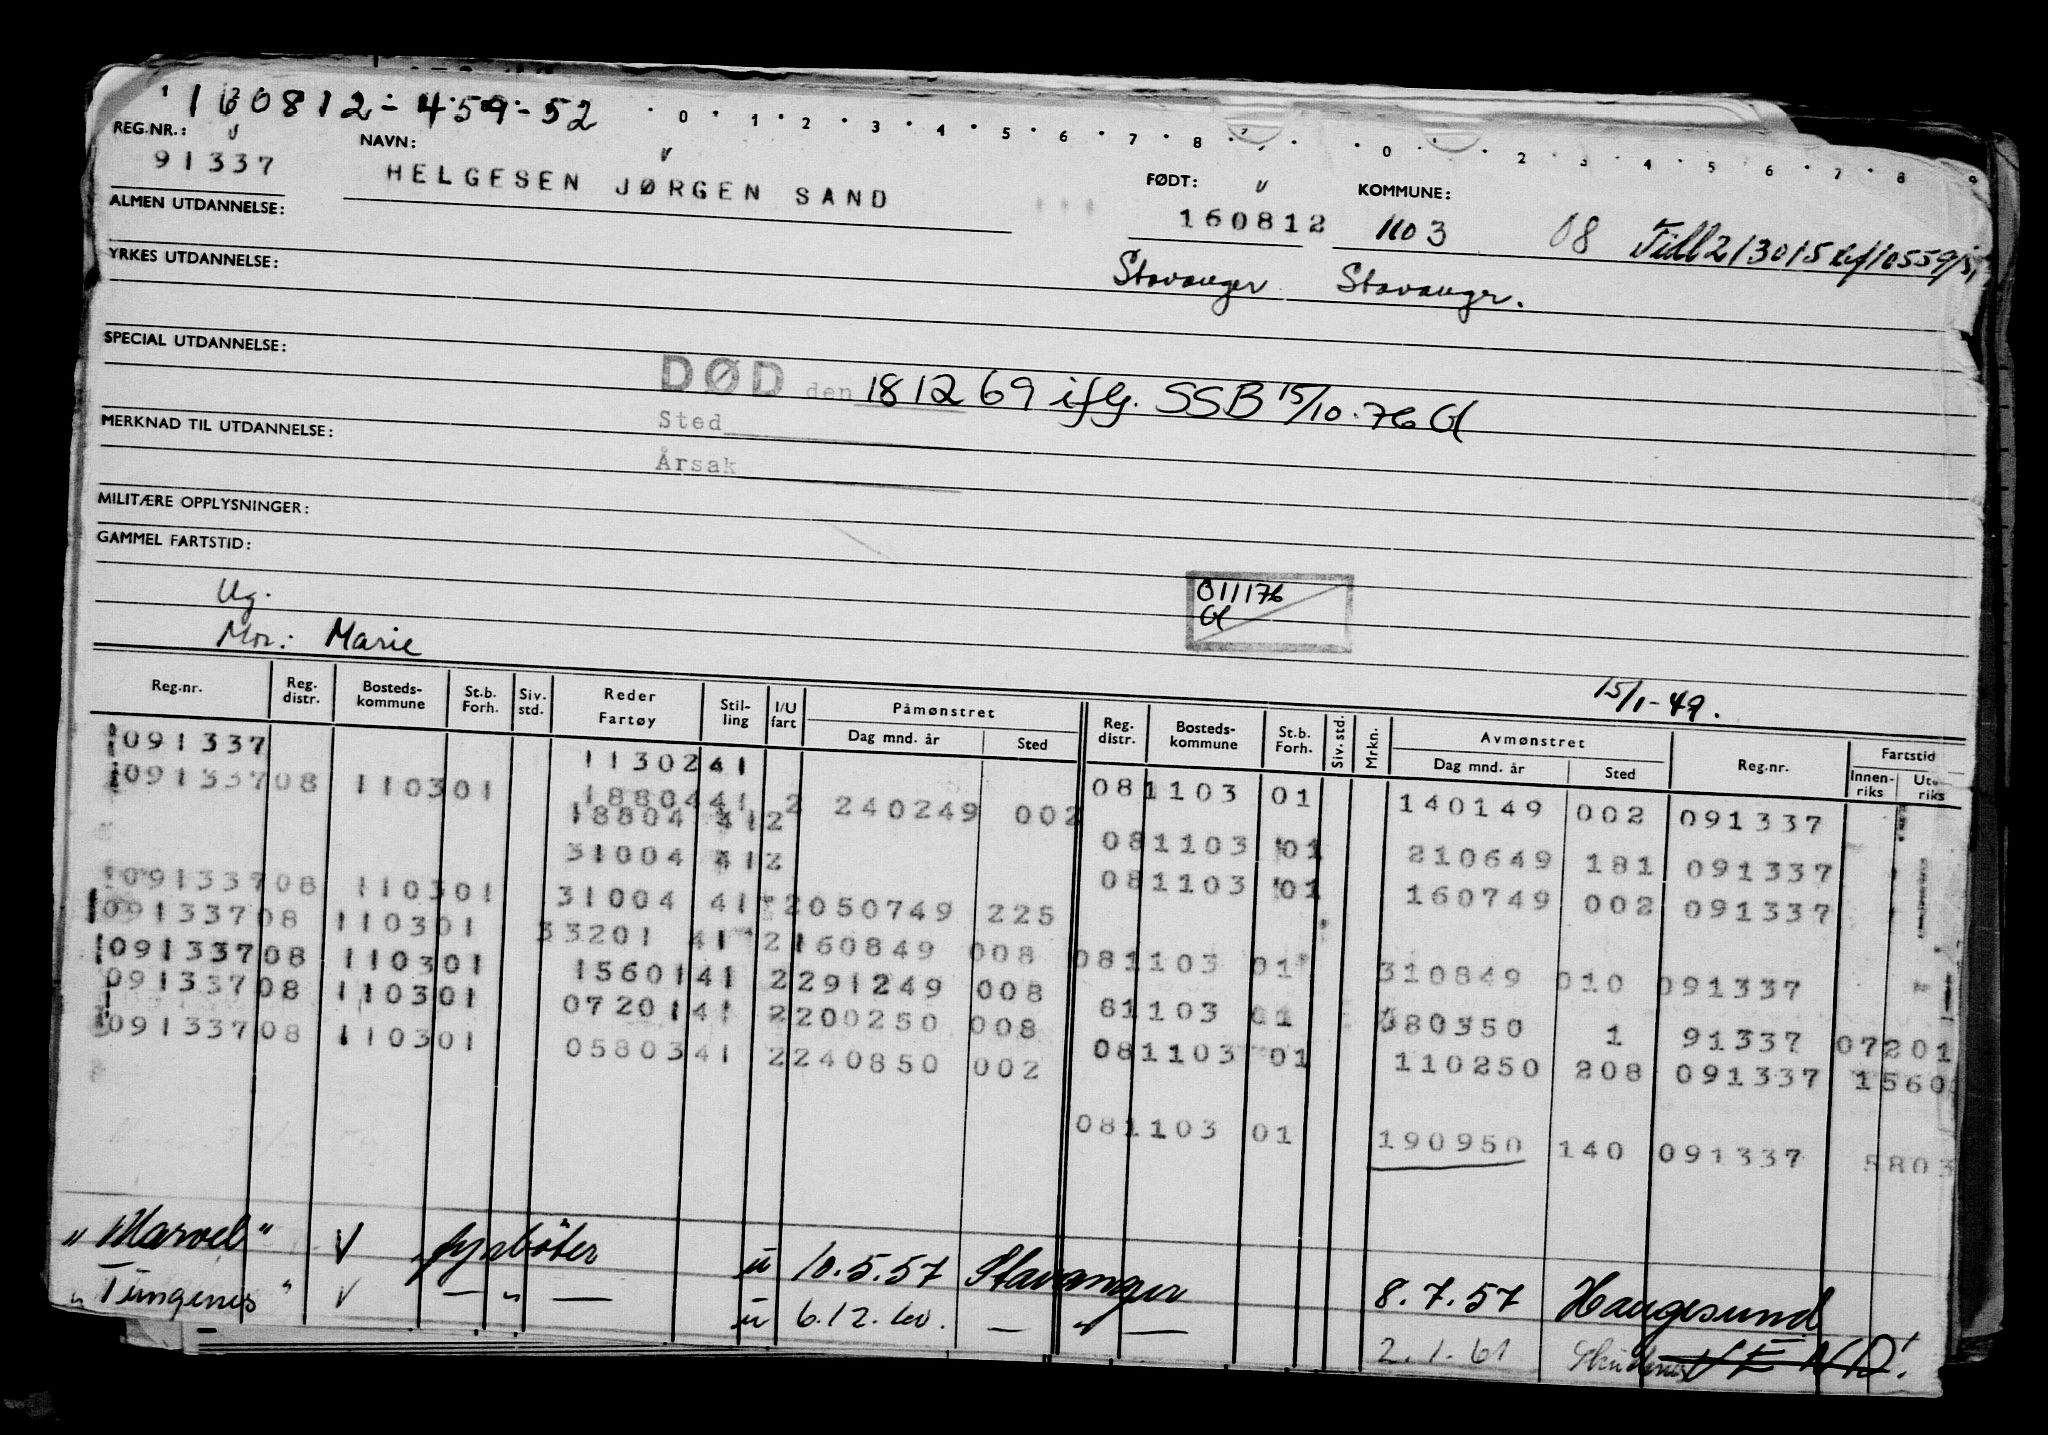 160812-459-52
0 1 2 3 4 5 6 7 8 0 2 3 4 5 6 7 8 9
REG.NR.: NAVN: FØDT: KOMMUNE:
91337 HELGESEN JØRGEN SAND 160812 1103 08
ALMEN UTDANNELSE:
Stavanger Stavanger.
YRKES UTDANNELSE:
SPECIAL UTDANNELSE:
DØD den 181269 iflg. SSB 15/10.76
Sted
MERKNAD TIL UTDANNELSE:
Årsak
MILITÆRE OPPLYSNINGER:
GAMMEL FARTSTID:
Ug. 011176
Mor: Marie
15/1-49.
Reg.nr. Reg. distr. Bosteds-kommune St.b. Forh. Siv. std. Reder Fartøy Stil-ling I/U fart Påmønstret Dag mnd. år Sted Reg. distr. Bosteds-kommune St.b. Forh. Siv. std. Mrkn. Avmønstret Dag mnd. år Sted Reg.nr. Fartstid Innen-riks Ute riks
091337 11302 41 08 1103 01 140149 002 091337
091337 08 1103 01 18804 41 2 240249 002
18804 41 2 08 1103 01 210649 181 091337
31004 41 2 08 1103 01 160749 002 091337
091337 08 1103 01 31004 41 2 050749 225
091337 08 1103 01 33201 41 2 160849 008 08 1103 01 310849 010 091337
091337 08 1103 01 15601 41 2 291249 008 8 1103 01 080350 1 91337 07201
091337 08 1103 01 07201 41 2 200250 008 08 1103 01 110250 208 091337 1560
091337 08 1103 01 05803 41 2 240850 002
08 1103 01 190950 140 091337 5803
"Marvel" V fyrbøter u 10.5.57 Stavanger 8.7.57 Haugesund
"Tungenes" V — " — u 6.12.60. — " — 2.1.61